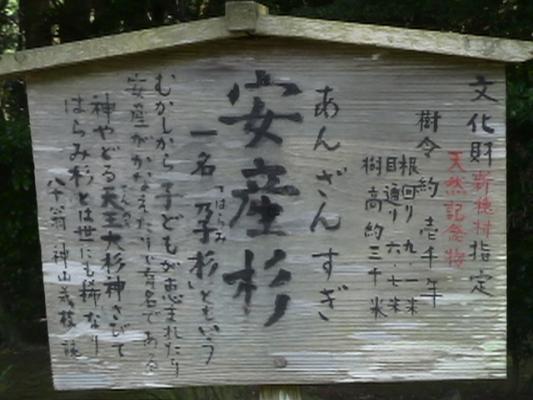 文化財新穂村指定
天然記念物
樹令約壱千年
根回り九・一米
目通り六・七米
樹高約三十米
あんざんすぎ
安産杉
一名「孕杉」ともいう
はらみ
むかしから子どもが恵まれたり
安産がかなえたりで有名である
神やどる天王大杉神さびて
てんのう
はらみ杉とは世にも稀なり
八十翁 神山義枝 詠